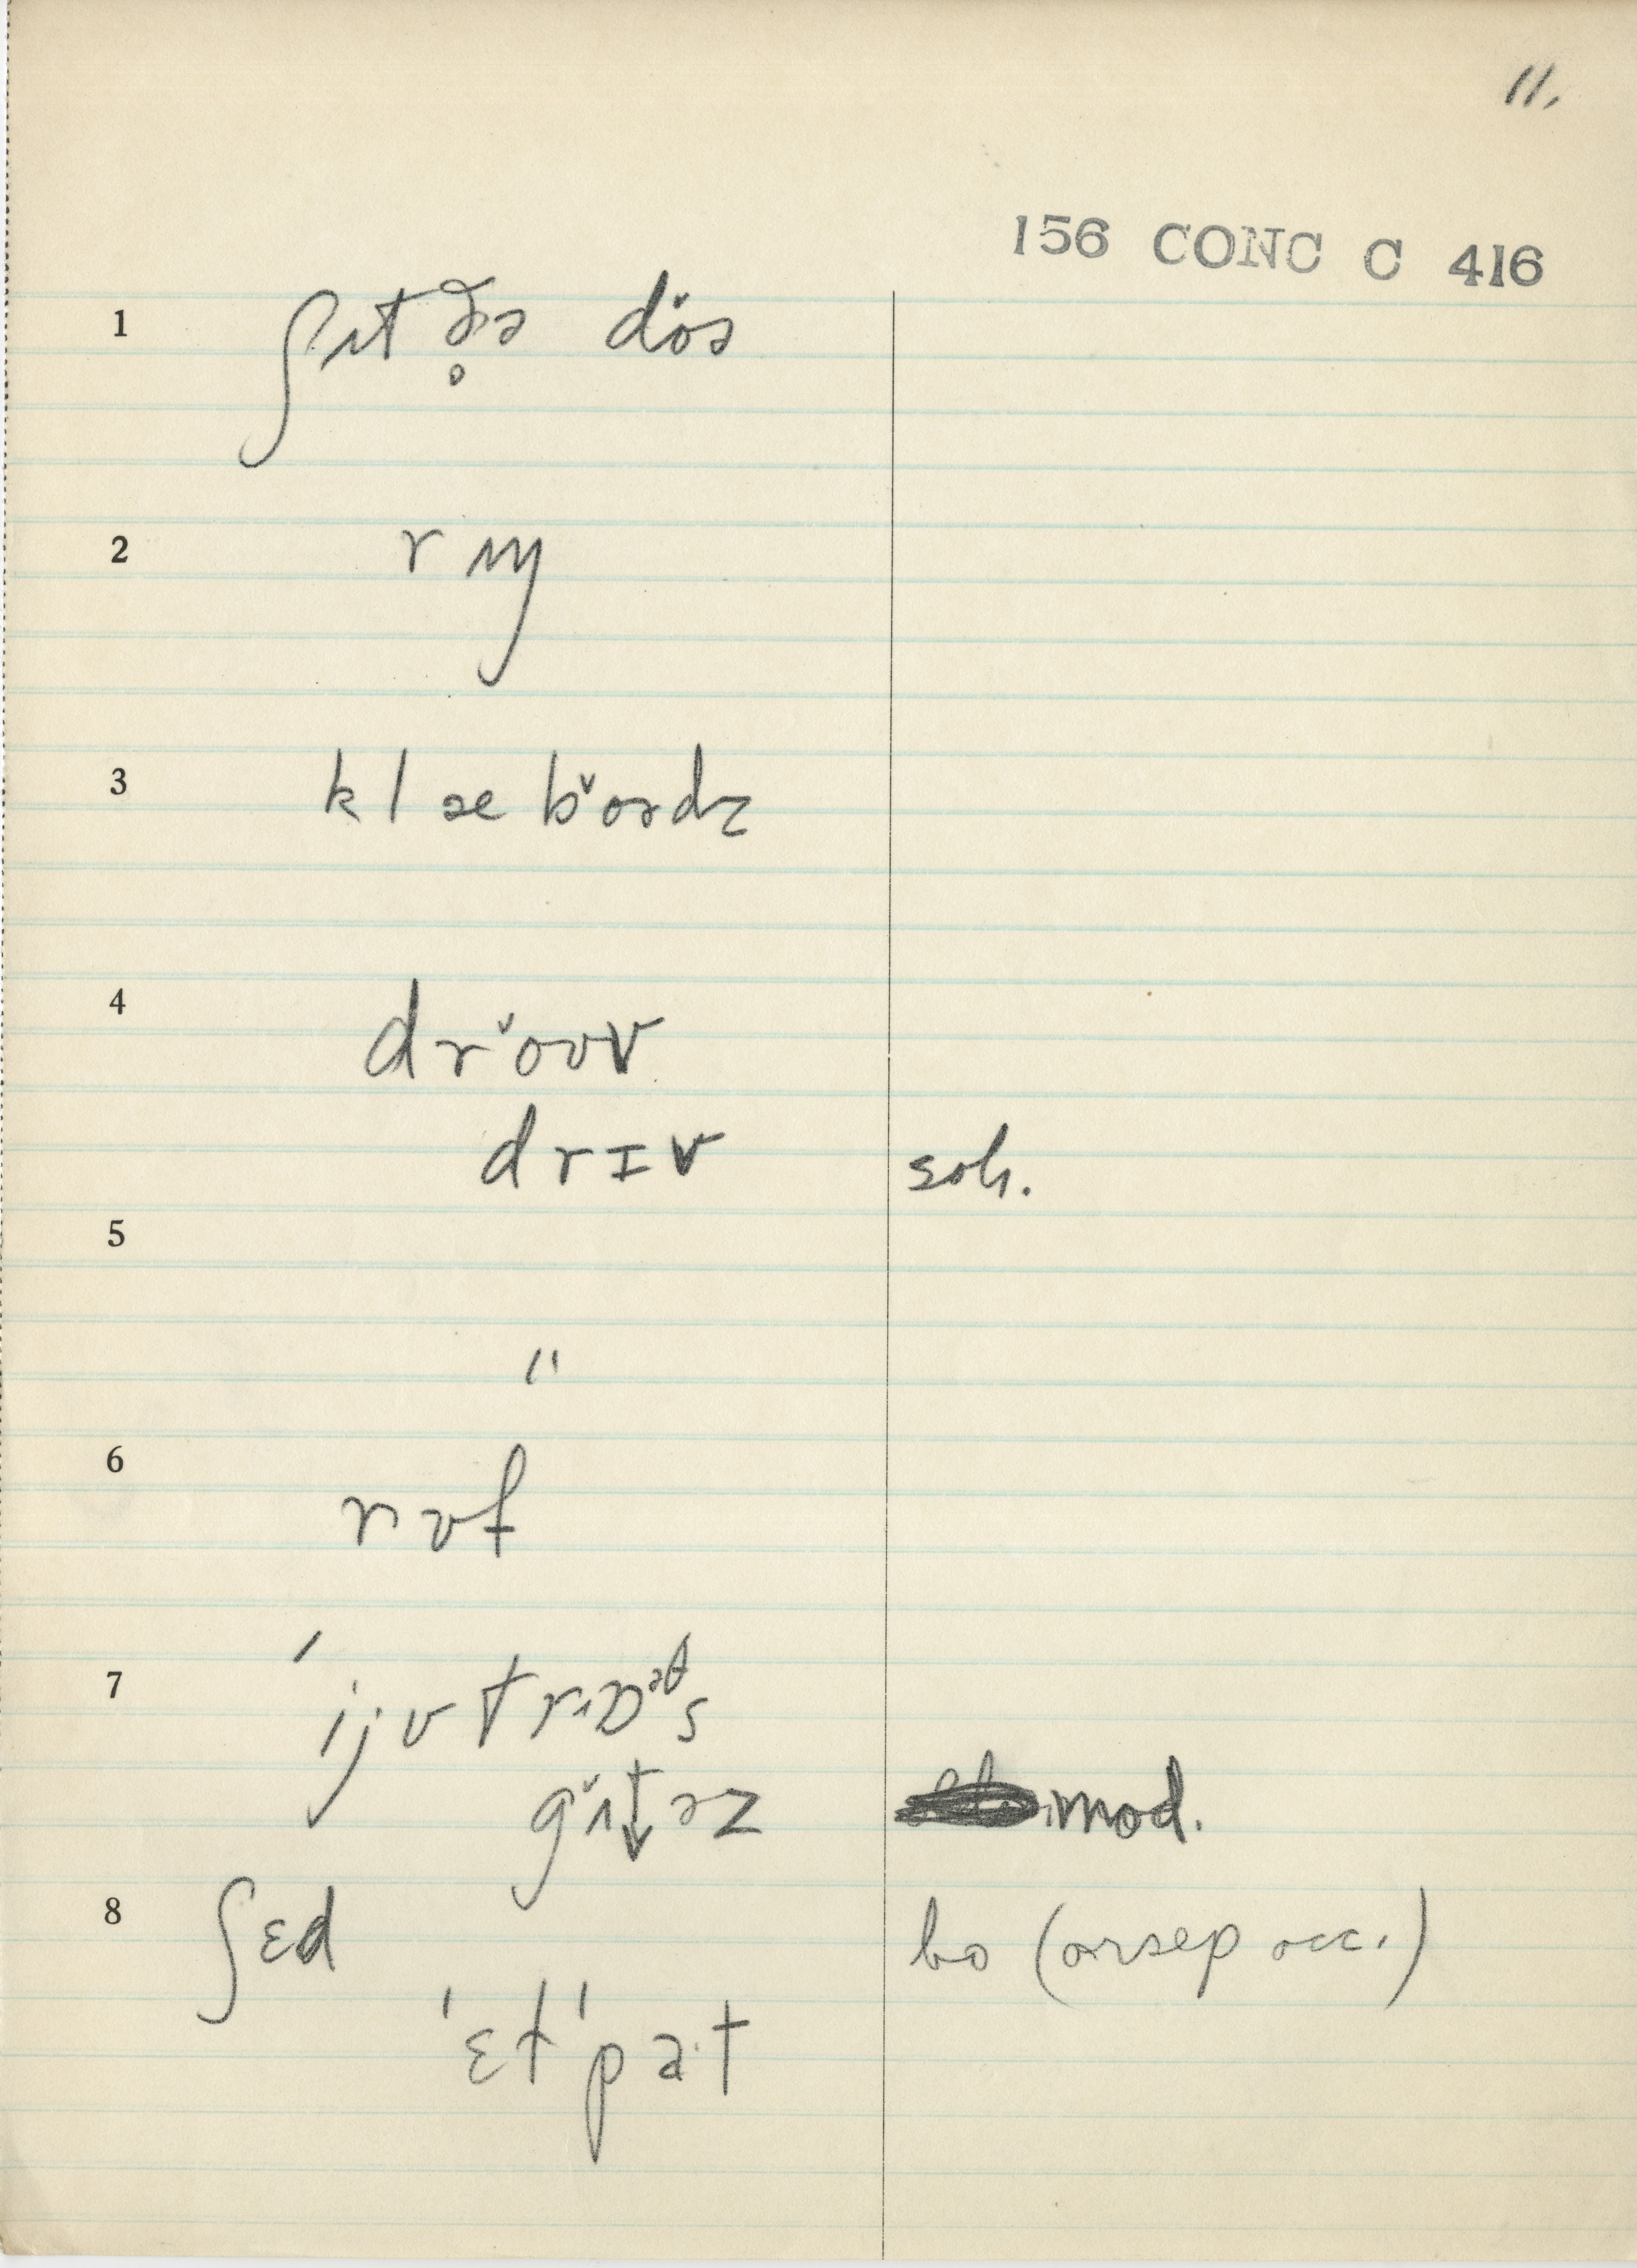 11.
156 CONC C 416
1 ʃɪt ð̥ə dö̌ə
2 rɪŋ
3 klæ bǒədz
4 drǒʊv
drɪv
5
"
6 rʊf
7 ' ijʊtrɒᵊts
gʌ̌t̬ərz mod.
8 ʃɛd bo (or sep occ.)
'ɛt'pa·t